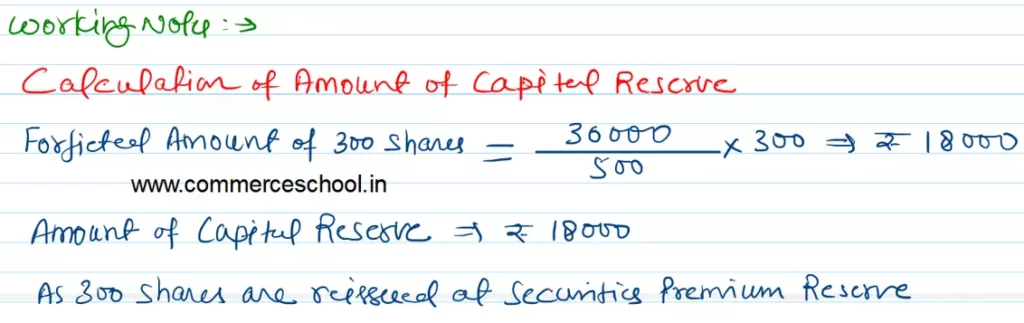 Working Note :→
Calculation of Amount of Capital Reserve
Forficted Amount of 300 shares = 30000/500 × 300 ⇒ ₹ 18000
www.commerceschool.in
Amount of Capital Reserve ⇒ ₹ 18000
As 300 shares are reissued at Securities Premium Reserve